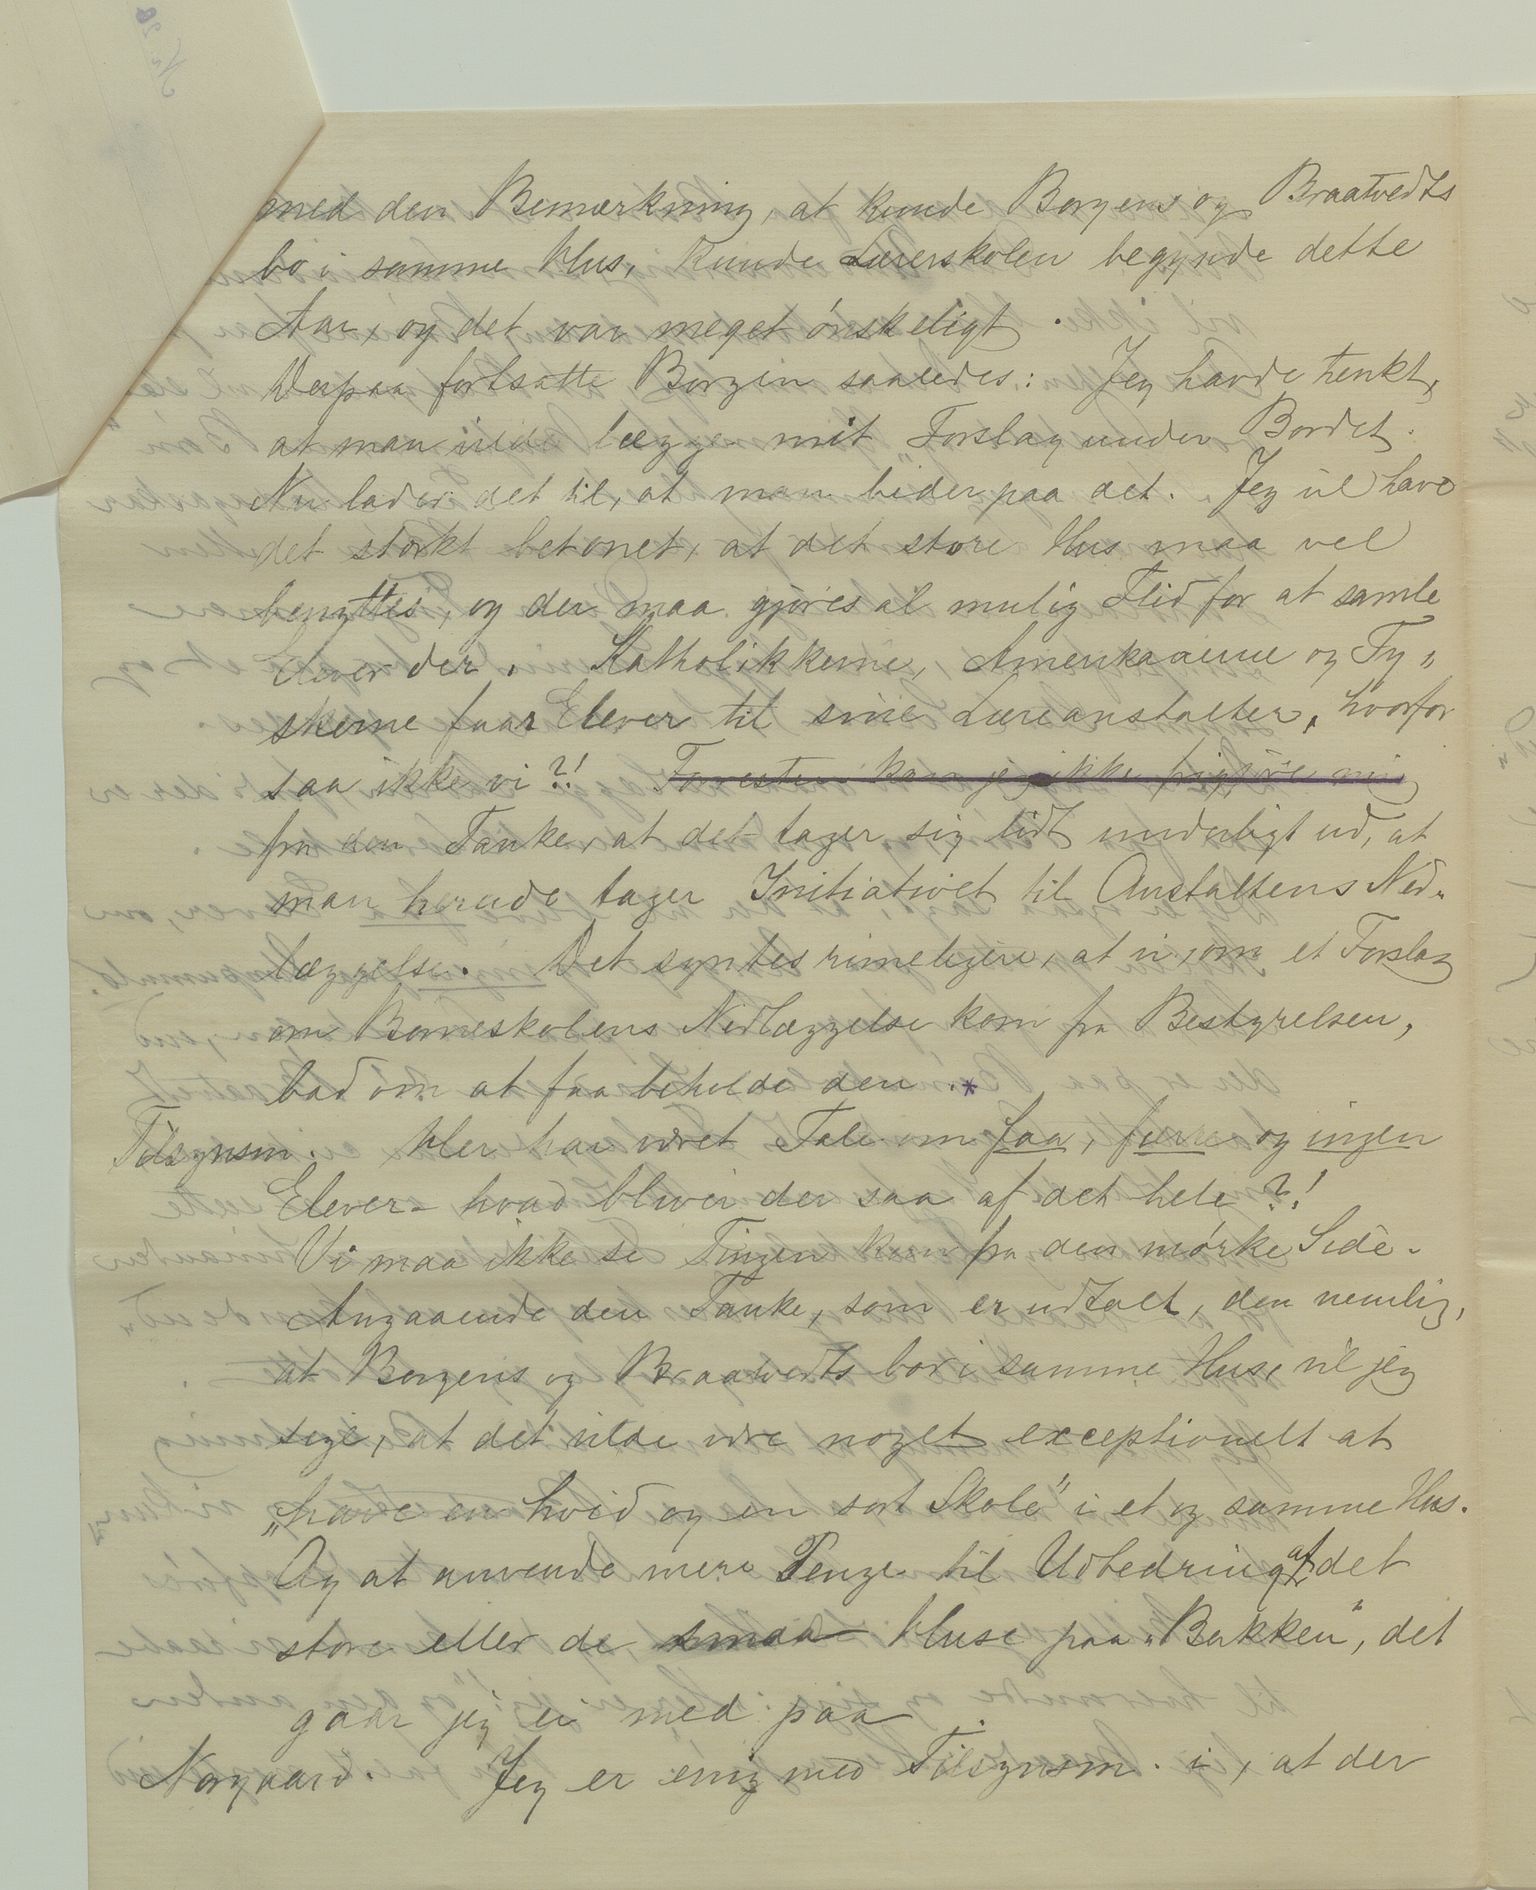 med den Bemærkning, at kunde Borgens og Braatvedts
bo i samme Hus, kunde Lærerskolen begynde dette
Aar, og det var meget ønskeligt.
Derpaa fortsatte Borgen saaledes: Jeg havde tænkt,
at man vilde lægge mit Forslag under Bordet.
Nu lader det til, at man bider paa det. Jeg vil have
det stærkt betonet, at det store Hus maa vel
benyttes, og der maa gjøres al mulig Flid for at samle
Elever der. Katholikkerne, Amerikanerne og Ty„
skerne faar Elever til sine Læreanstalter, hvorfor
saa ikke vi?! Forresten kan jeg ikke frigjøre mig
fra den Tanke, at det tager sig lidt underligt ud, at
man herude tager Initiativet til Anstaltens Ned„
læggelse. Det syntes rimeligere, at vi, om et Forslag
om Børneskolens Nedlæggelse kom fra Bestyrelsen,
bad om at faa beholde den.*
Tilsynsm. Her har været Tale om faa, færre og ingen
Elever - hvad bliver der saa af det hele?!
Vi maa ikke se Tingen kun fra den mørke Side.
Angaaende den Tanke, som er udtalt, den nemlig,
at Borgens og Braatvedts bor i samme Hus, vil jeg
sige, at det vilde være noget exceptionelt at
„have en hvid og en sort Skole" i et og samme Hus.
Og at anvende mere Penge til Udbedring af det
store eller de smaa Huse paa „Bakken", det
gaar jeg ei med paa.
Norgaard. Jeg er enig med Tilsynsm. i, at der